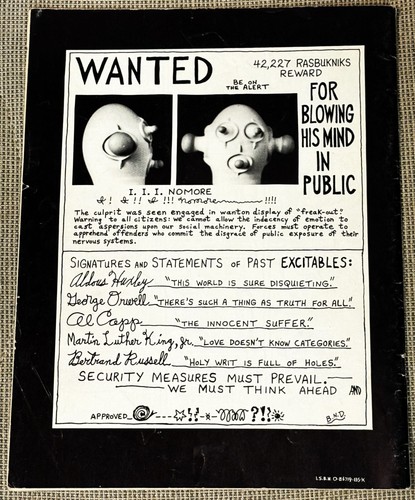 WANTED
42,227 RASBUKNIKS
REWARD
BE ON
THE ALERT
FOR
BLOWING
HIS MIND
IN
PUBLIC
I. I. I. NOMORE
I! I!! I!!! nomore !!!!
The culprit was seen engaged in wanton display of "freak-out".
Warning to all citizens: we cannot allow the indecency of emotion to
cast aspersions upon our social machinery. Forces must operate to
apprehend offenders who commit the disgrace of public exposure of their
nervous systems.
SIGNATURES AND STATEMENTS OF PAST EXCITABLES:
Aldous Huxley "THIS WORLD IS SURE DISQUIETING."
George Orwell "THERE'S SUCH A THING AS TRUTH FOR ALL."
Al Capp "THE INNOCENT SUFFER."
Martin Luther King, Jr. "LOVE DOESN'T KNOW CATEGORIES."
Bertrand Russell "HOLY WRIT IS FULL OF HOLES."
SECURITY MEASURES MUST PREVAIL.
WE MUST THINK AHEAD AND
APPROVED
B.N.D.